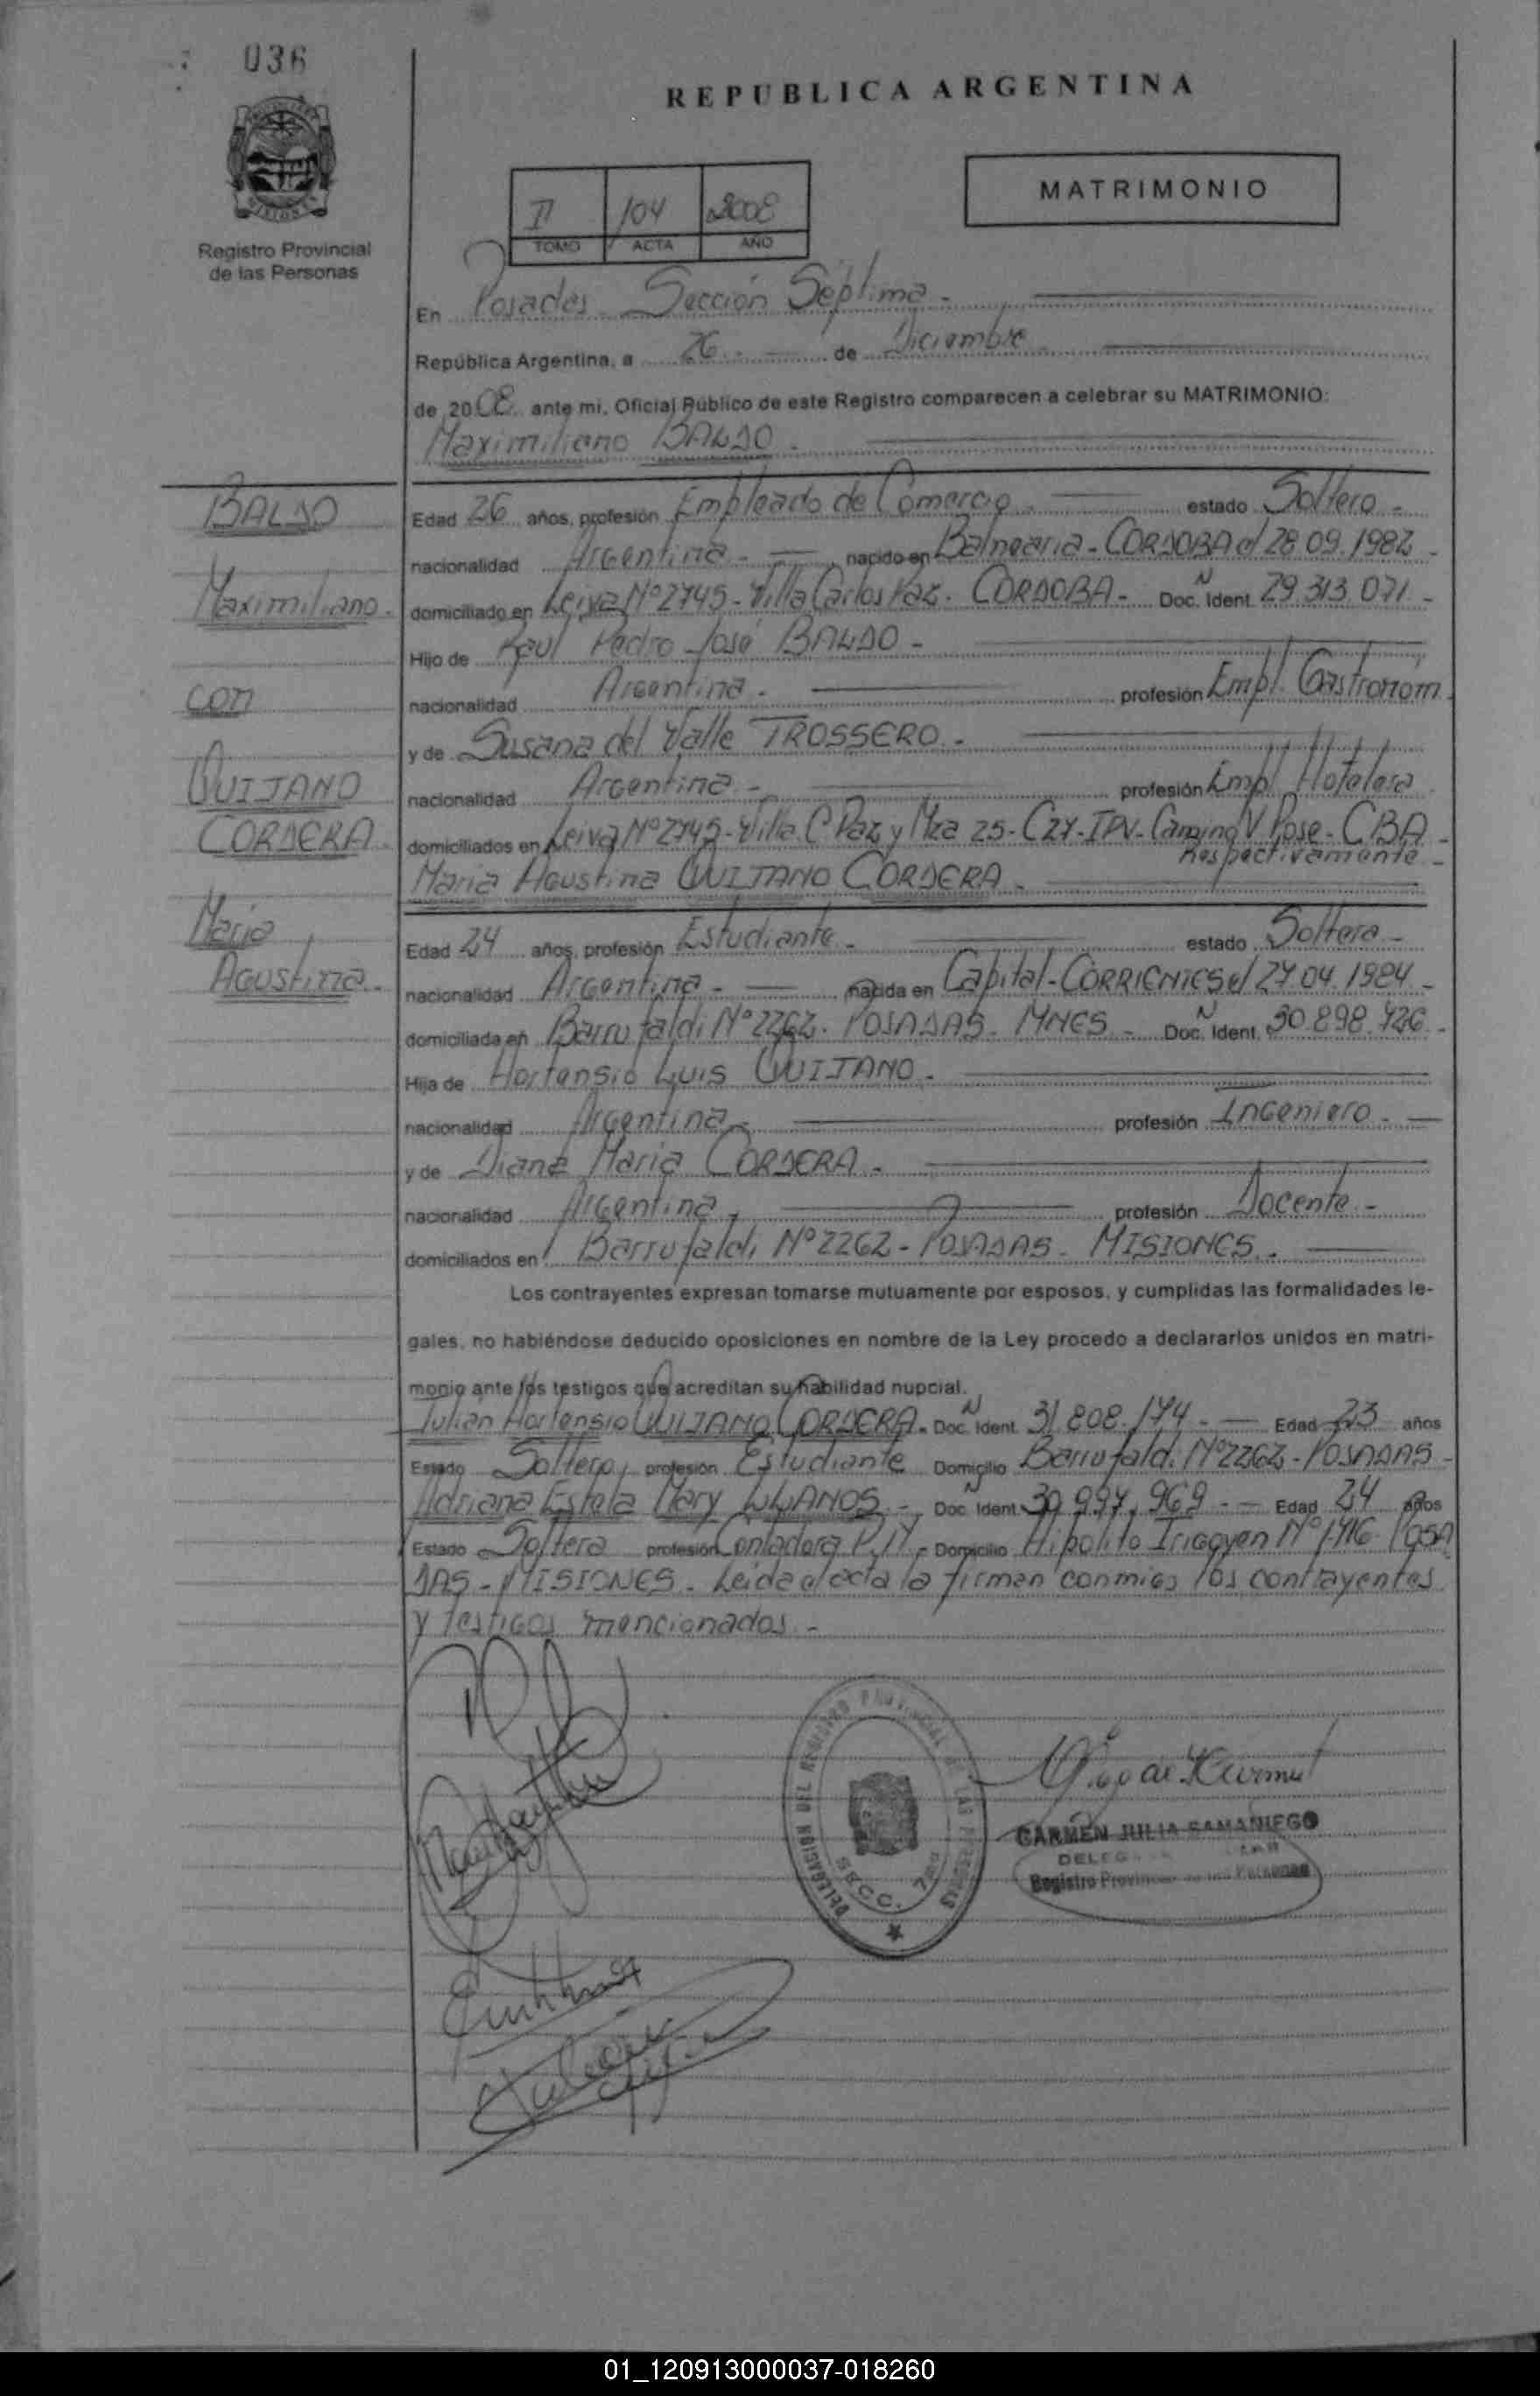 036
REPUBLICA ARGENTINA
MATRIMONIO
II 104 2008
TOMO ACTA AÑO
Registro Provincial
de las Personas
En Posadas Sección Séptima.-
República Argentina, a 26.- de Diciembre
de 2008 ante mi, Oficial Público de este Registro comparecen a celebrar su MATRIMONIO:
Maximiliano BALDO.-
BALDO
Maximiliano.-
con
QUIJANO
CORDERA
María
Agustina.-
Edad 26 años, profesión Empleado de Comercio.- estado Soltero.-
nacionalidad Argentina.- nacido en Balnearia-CORDOBA el 28.09.1982.-
domiciliado en Leiva Nº2745-Villa Carlos Paz. CORDOBA.- Doc. N Ident. 29.313.071.-
Hijo de Raul Pedro José BALDO.-
nacionalidad Argentina.- profesión Empl. Gastronóm.
y de Susana del Valle TROSSERO.-
nacionalidad Argentina.- profesión Empl. Hotelera
domiciliados en Leiva Nº2745-Villa C. Paz y Mza 25-C27-IPV-Camino V. Pose-CBA.-
Respectivamente.-
María Agustina QUIJANO CORDERA.-
Edad 24 años, profesión Estudiante.- estado Soltera.-
nacionalidad Argentina.- nacida en Capital-CORRIENTES el 27.04.1984.-
domiciliada en Barrufaldi Nº2262. POSADAS. MNES.- Doc. N Ident. 30.898.726.-
Hija de Hortensio Luis QUIJANO.-
nacionalidad Argentina.- profesión Ingeniero.-
y de Diana María CORDERA.-
nacionalidad Argentina.- profesión Docente.-
domiciliados en Barrufaldi Nº2262-POSADAS-MISIONES.-
Los contrayentes expresan tomarse mutuamente por esposos, y cumplidas las formalidades le-
gales, no habiéndose deducido oposiciones en nombre de la Ley procedo a declararlos unidos en matri-
monio ante los testigos que acreditan su habilidad nupcial.
Julián Hortensio QUIJANO CORDERA.- Doc. N Ident. 31.808.174.- Edad 23 años
Estado Soltero, profesión Estudiante Domicilio Barrufaldi Nº2262-POSADAS-
Adriana Estela Mery LLANOS.- Doc. N Ident. 30.997.969.- Edad 24 años
Estado Soltera profesión Contadora P.N.- Domicilio Hipólito Irigoyen Nº1716-POSA
DAS-MISIONES. Leída el acta la firman conmigo los contrayentes
y testigos mencionados.-
DELEGACION DEL REGISTRO PROVINCIAL DE LAS PERSONAS
SECC. 7ma
CARMEN JULIA SAMANIEGO
Registro Provincial de las Personas
01_120913000037-018260